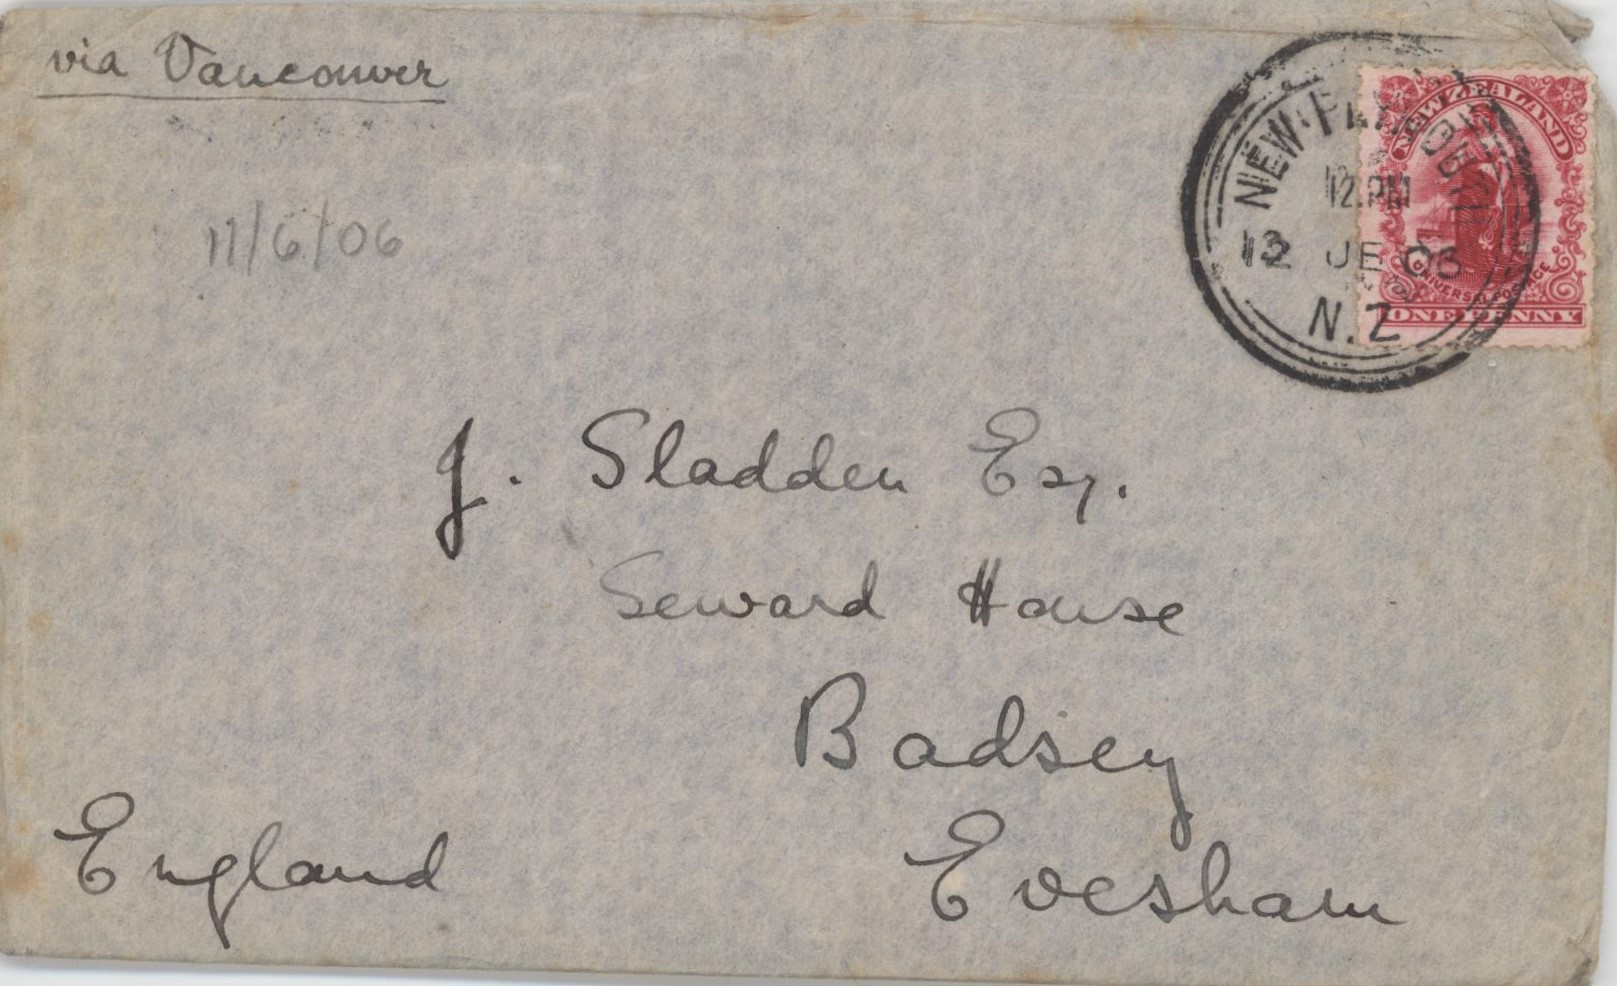 via Vancouver
11/6/06
NEW PLYMOUTH
12.PM
12 JE 06
N.Z
NEW ZEALAND
UNIVERSAL POSTAGE
ONE PENNY
J. Sladden Esq.
Seward House
Badsey
Evesham
England